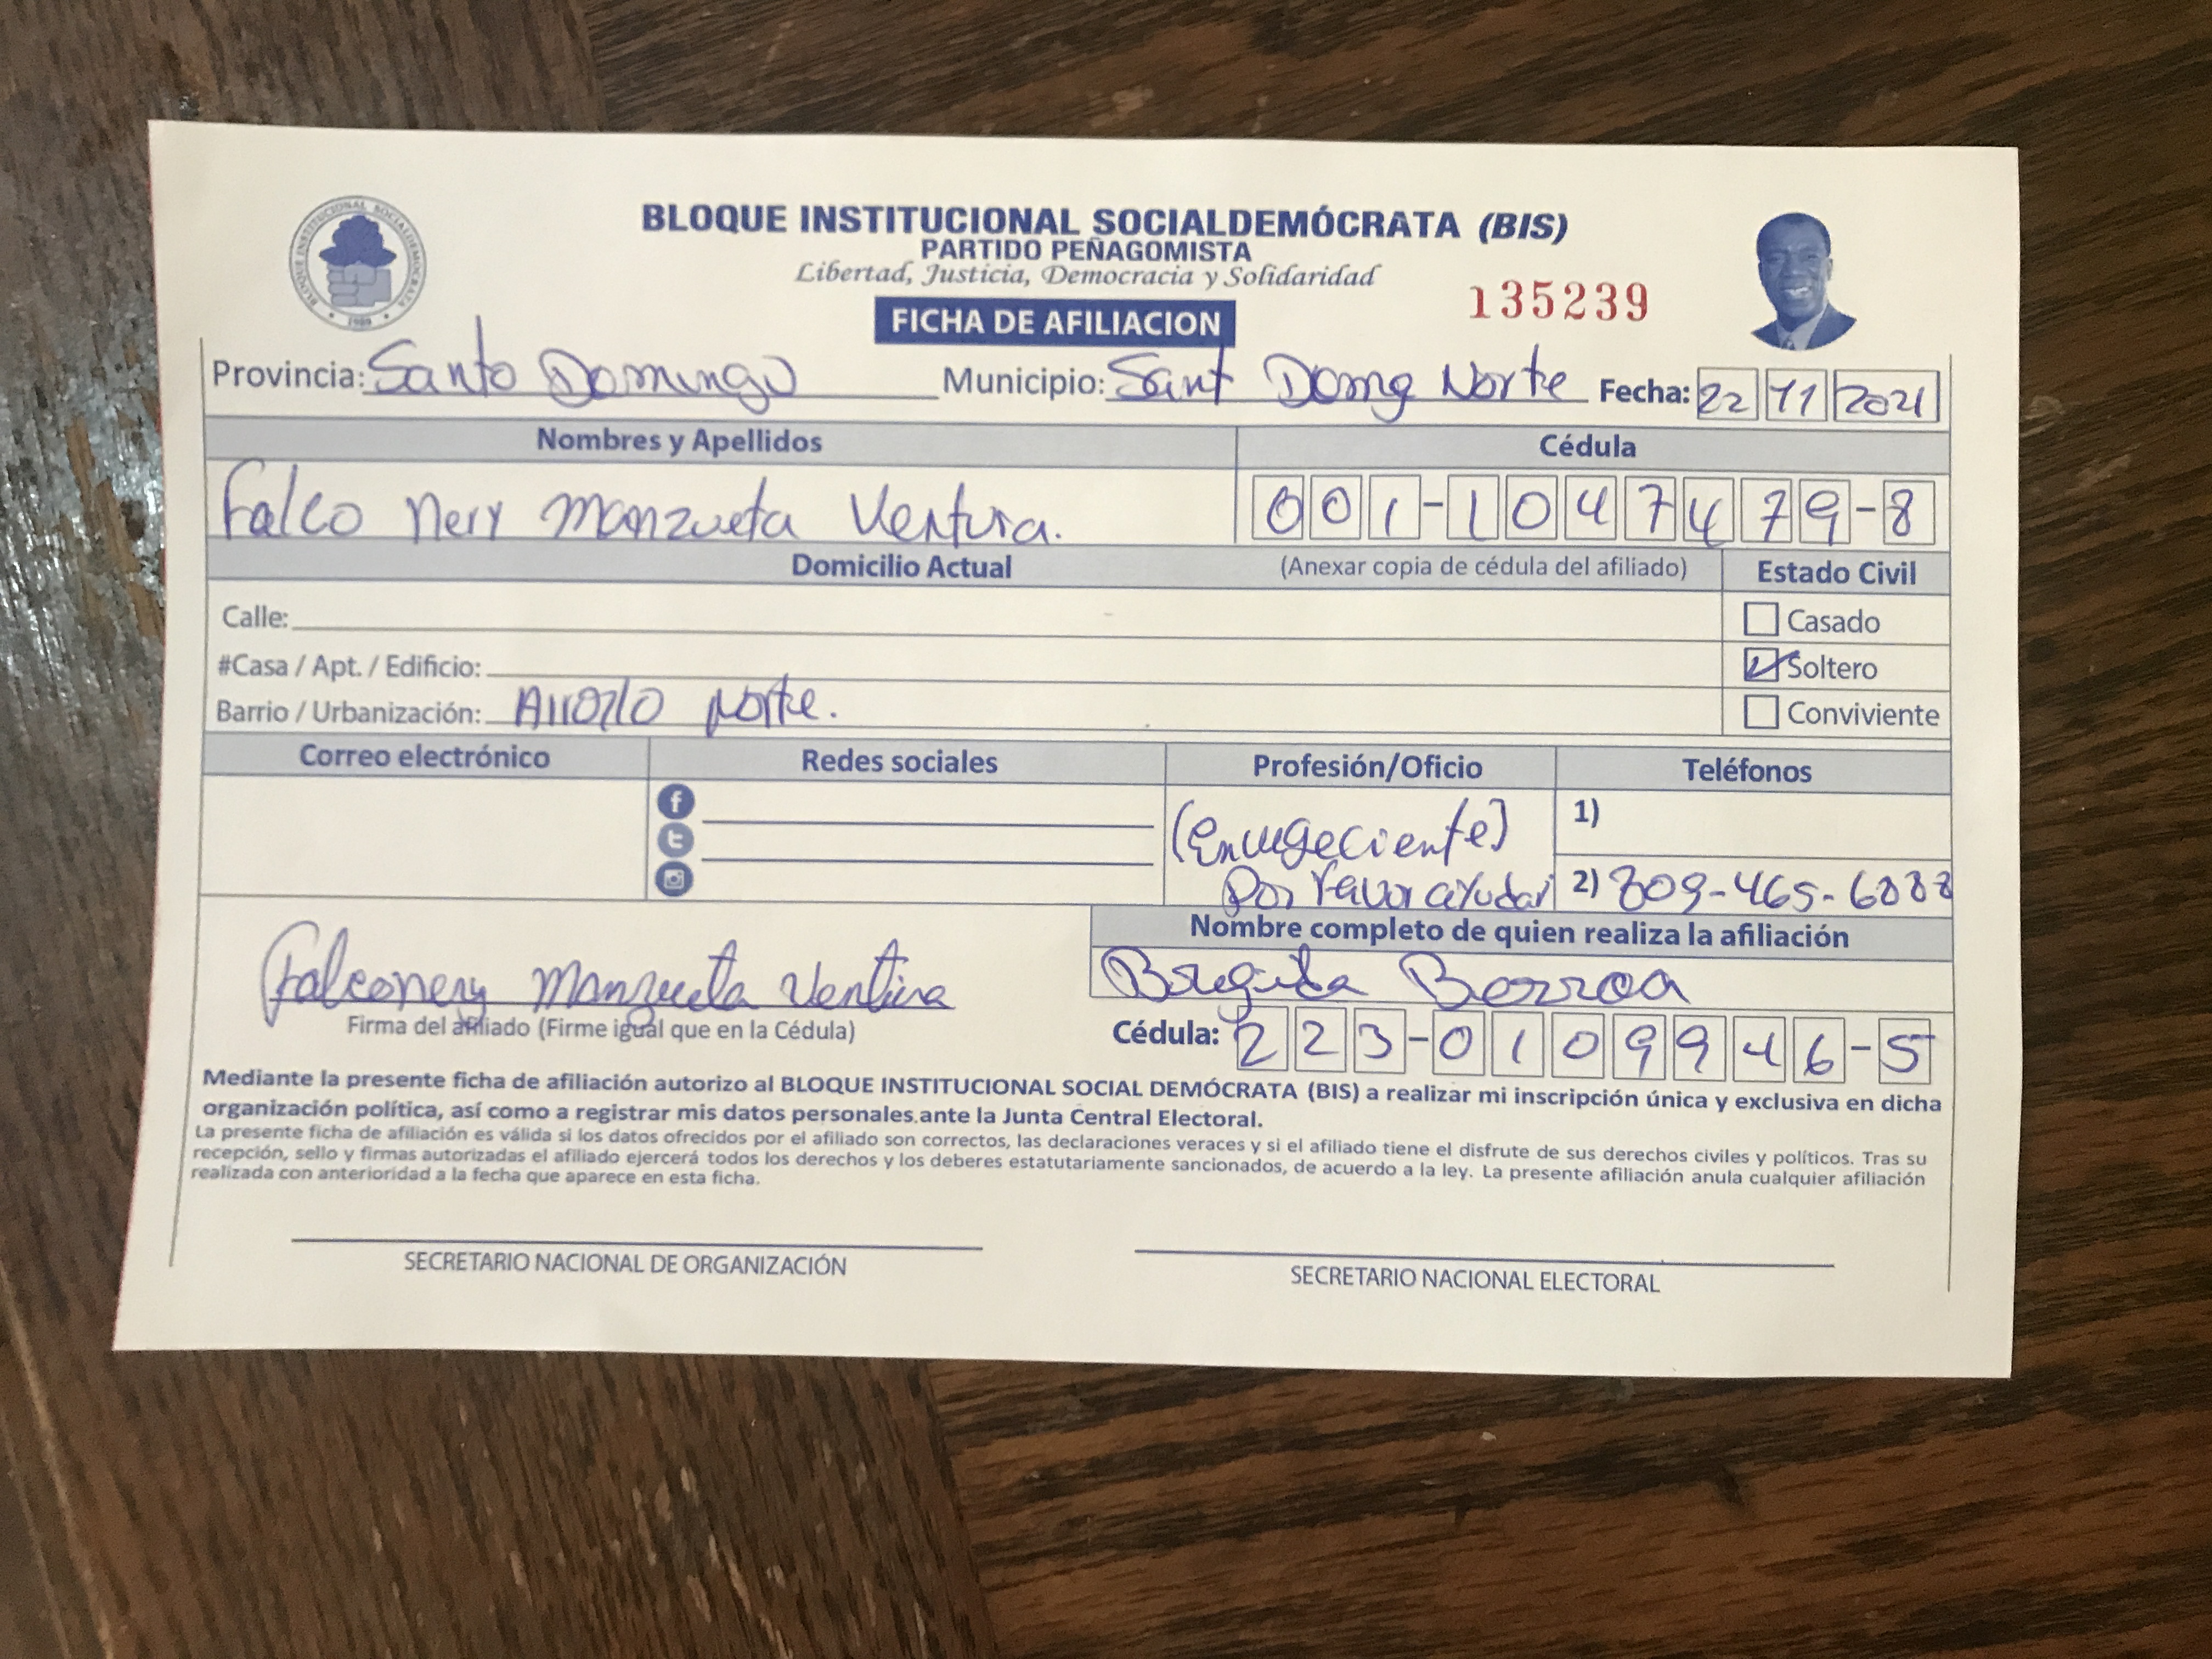 BLOQUE INSTITUCIONAL SOCIALDEMÓCRATA (BIS)
PARTIDO PEÑAGOMISTA
Libertad, Justicia, Democracia y Solidaridad
135239
FICHA DE AFILIACION
BLOQUE INSTITUCIONAL SOCIALDEMOCRATA
1989
Provincia: Santo Domingo Municipio: Sant Domg Norte Fecha: 22 11 2021
Nombres y Apellidos Cédula
Falco Nery Manzueta Ventura. 001-1047479-8
Domicilio Actual (Anexar copia de cédula del afiliado) Estado Civil
Calle: Casado
#Casa / Apt. / Edificio: Soltero
Barrio / Urbanización: Arrollo Norte. Conviviente
Correo electrónico Redes sociales Profesión/Oficio Teléfonos
(Envegeciente) 1)
Por favor ayudar 2) 809-465-
Nombre completo de quien realiza la afiliación
Falconery Manzueta Ventura Brigida Berroa
Firma del afiliado (Firme igual que en la Cédula) Cédula: 223-0109946-5
Mediante la presente ficha de afiliación autorizo al BLOQUE INSTITUCIONAL SOCIAL DEMÓCRATA (BIS) a realizar mi inscripción única y exclusiva en dicha
organización política, así como a registrar mis datos personales.ante la Junta Central Electoral.
La presente ficha de afiliación es válida si los datos ofrecidos por el afiliado son correctos, las declaraciones veraces y si el afiliado tiene el disfrute de sus derechos civiles y políticos. Tras su
recepción, sello y firmas autorizadas el afiliado ejercerá todos los derechos y los deberes estatutariamente sancionados, de acuerdo a la ley. La presente afiliación anula cualquier afiliación
realizada con anterioridad a la fecha que aparece en esta ficha.
SECRETARIO NACIONAL DE ORGANIZACIÓN SECRETARIO NACIONAL ELECTORAL